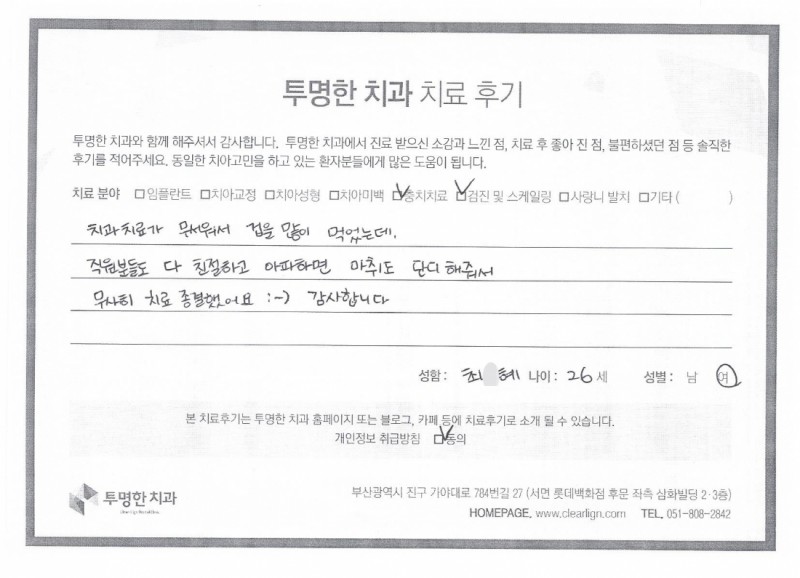 투명한 치과 치료 후기
투명한 치과와 함께 해주셔서 감사합니다. 투명한 치과에서 진료 받으신 소감과 느낀 점, 치료 후 좋아 진 점, 불편하셨던 점 등 솔직한
후기를 적어주세요. 동일한 치아고민을 하고 있는 환자분들에게 많은 도움이 됩니다.
치료 분야 □임플란트 □치아교정 □치아성형 □치아미백 ☑충치치료 ☑검진 및 스케일링 □사랑니 발치 □기타 ( )
치과치료가 무서워서 겁을 많이 먹었는데.
직원분들도 다 친절하고 아파하면 마취도 단디 해줘서
무사히 치료 종결했어요 :-) 감사합니다
성함 : 최 혜 나이 : 26 세 성별 : 남 여
본 치료후기는 투명한 치과 홈페이지 또는 블로그, 카페 등에 치료후기로 소개 될 수 있습니다.
개인정보 취급방침 ☑동의
투명한 치과
부산광역시 진구 가야대로 784번길 27 (서면 롯데백화점 후문 좌측 삼화빌딩 2·3층)
HOMEPAGE. www.clearlign.com TEL. 051-808-2842